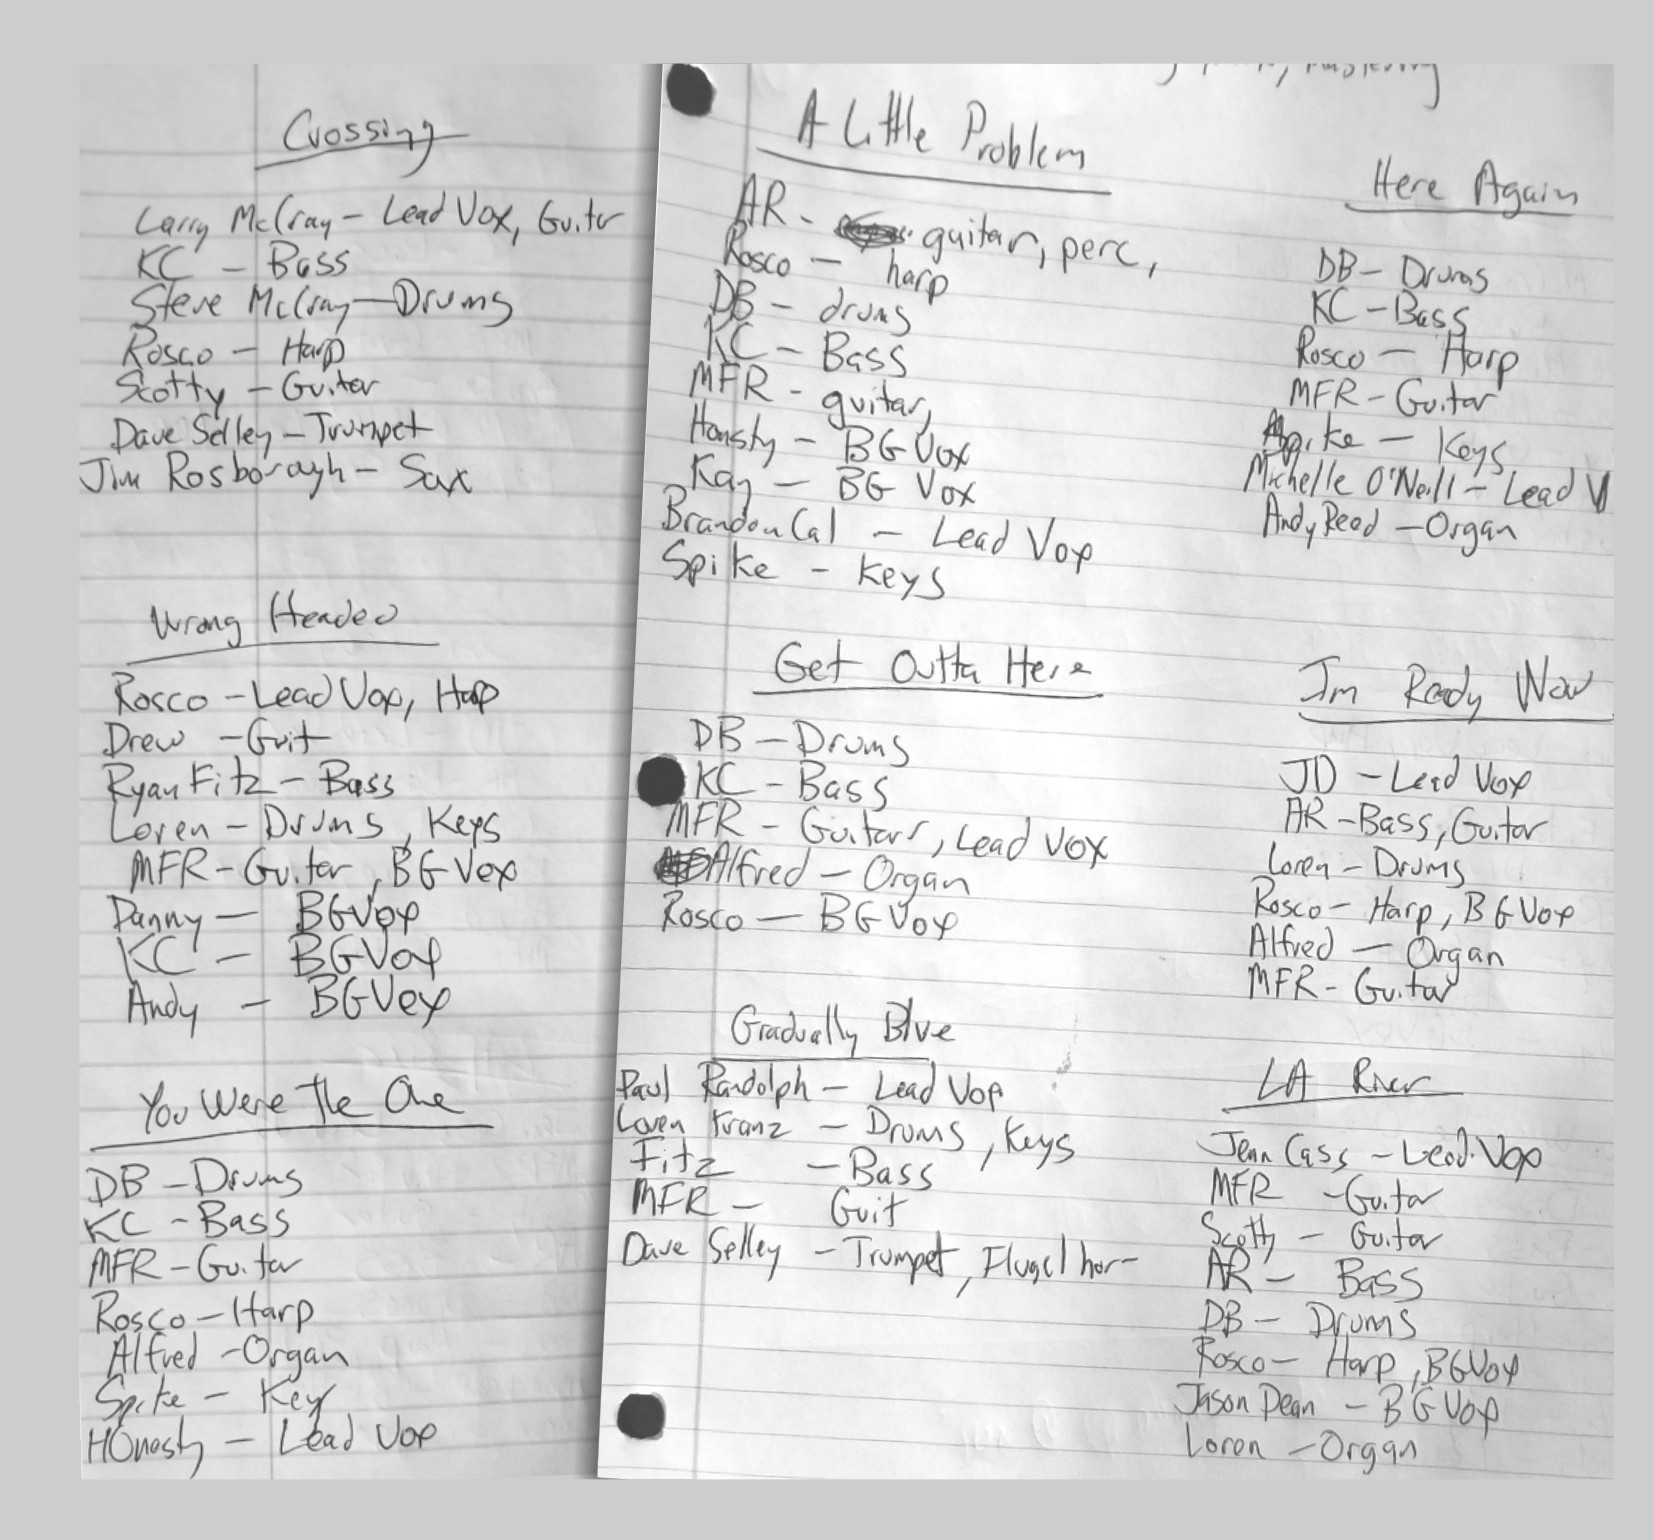 Crossing
Larry McCray - Lead Vox, Guitr
KC - Bass
Steve McCray - Drums
Rosco - Harp
Scotty - Guitar
Dave Selley - Trumpet
Jim Rosborough - Sax
Wrong Headed
Rosco - Lead Vox, Harp
Drew - Guit
Ryan Fitz - Bass
Loren - Drums, Keys
MFR - Guitar, BG Vox
Danny - BGVox
KC - BGVox
Andy - BGVox
You Were The One
DB - Drums
KC - Bass
MFR - Guitar
Rosco - Harp
Alfred - Organ
Spike - Key
HOnesty - Lead Vox
Mastering
A Little Problem
AR - guitar, perc,
Rosco - harp
DB - drums
KC - Bass
MFR - guitar,
Honsty - BG Vox
Kay - BG Vox
Brandon Cal - Lead Vox
Spike - keys
Get Outta Here
DB - Drums
KC - Bass
MFR - Guitars, Lead Vox
Alfred - Organ
Rosco - BGVox
Gradually Blue
Paul Randolph - Lead Vox
Loren Franz - Drums, Keys
Fitz - Bass
MFR - Guit
Dave Selley - Trumpet, Flugelhor-
Here Again
DB - Drums
KC - Bass
Rosco - Harp
MFR - Guitar
Spike - Keys
Michelle O'Neill - Lead V
Andy Reed - Organ
Im Ready Now
JD - Lead Vox
AR - Bass, Guitar
Loren - Drums
Rosco - Harp, BGVox
Alfred - Organ
MFR - Guitar
LA River
Jenn Cass - Lead Vox
MFR - Guitar
Scotty - Guitar
AR - Bass
DB - Drums
Rosco - Harp, BGVox
Jason Dean - BGVox
Loren - Organ